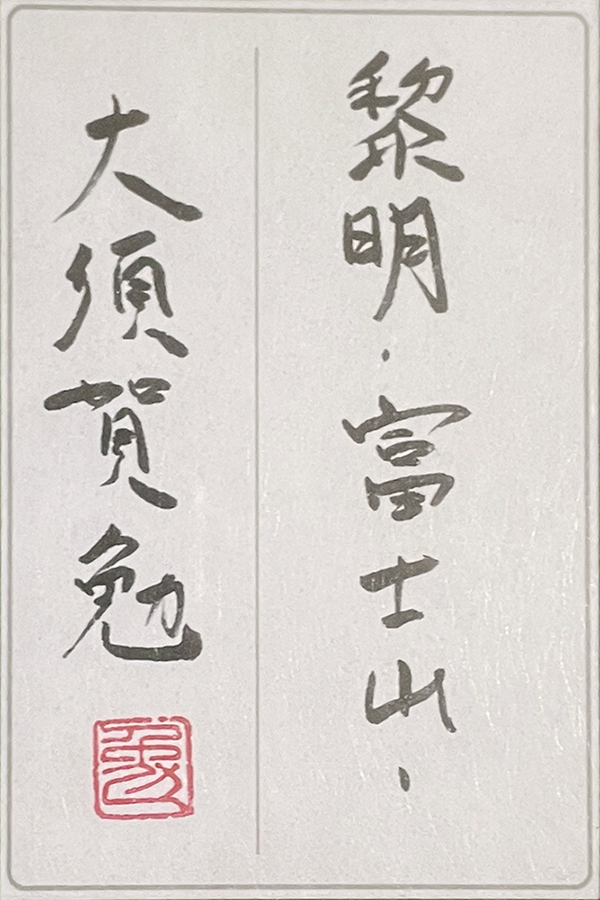 黎明・富士山・
大須賀勉